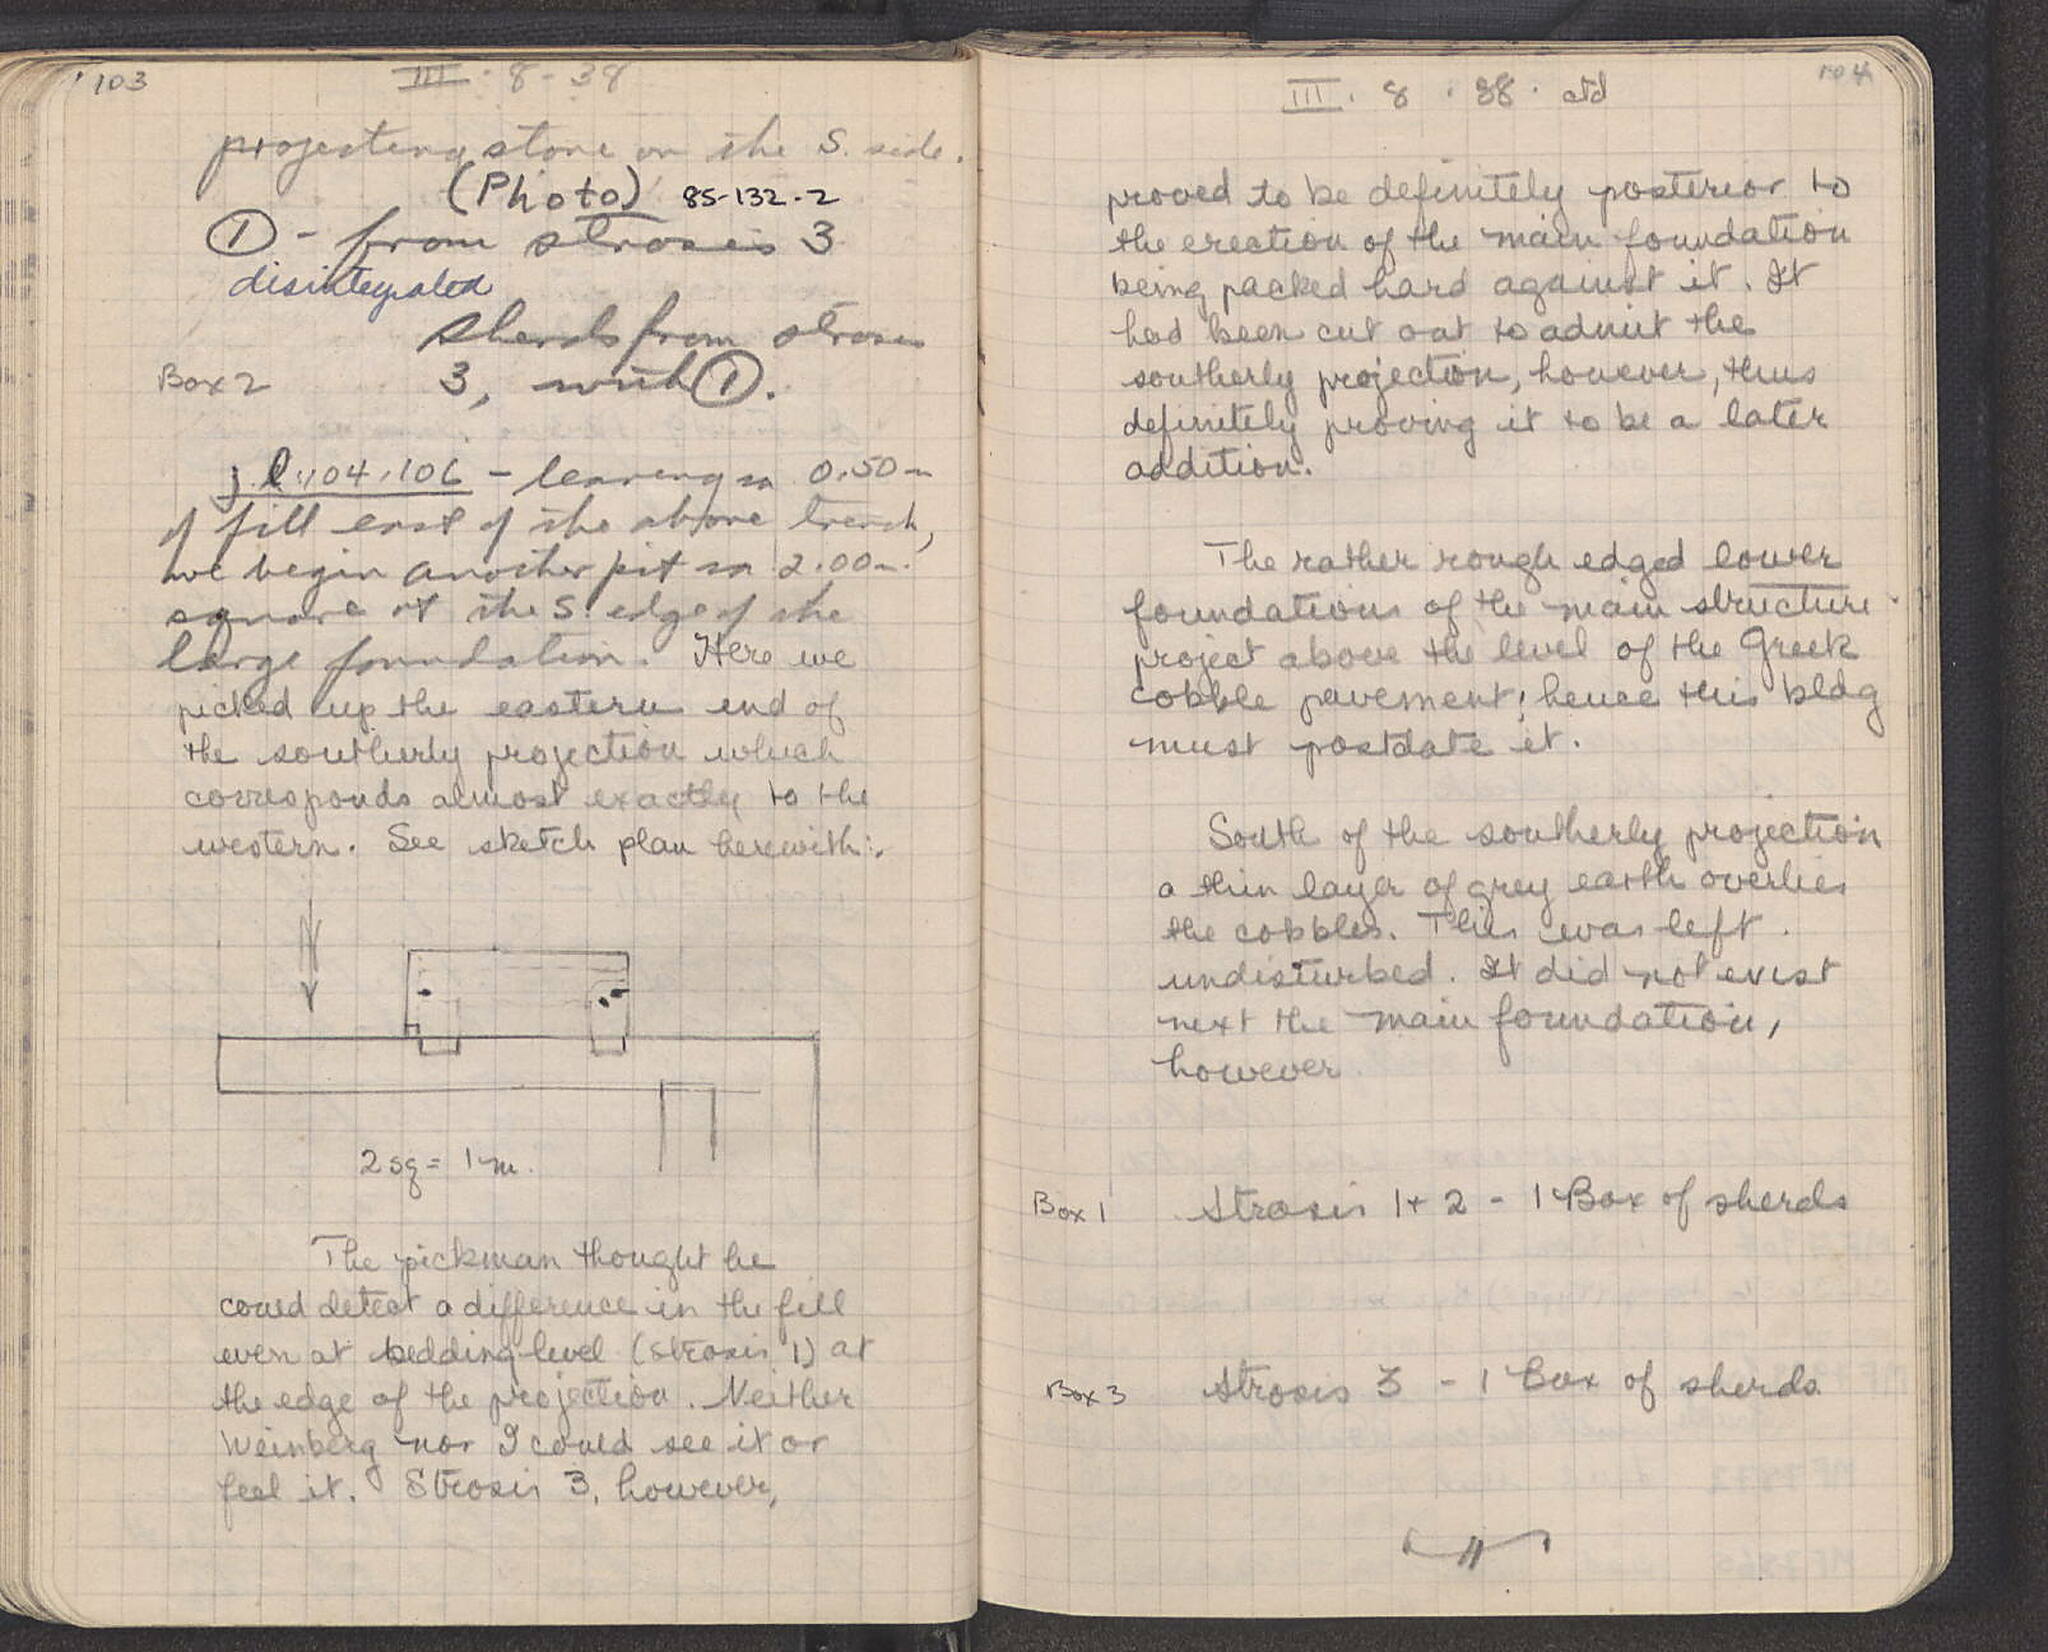 103
III · 8 - 38
projecting stone on the S. side.
(Photo) 85-132-2
① - from strosis 3
disintegrated
sherds from strosis
Box 2 3, with ①.
j.l:104.106 - leaving a 0.50m
of fill east of the above trench,
we begin another pit m 2.00m.
square at the S. edge of the
large foundation. Here we
picked up the eastern end of
the southerly projection which
corresponds almost exactly to the
western. See sketch plan herewith:.
N
2 sq = 1 m.
The pickman thought he
could detect a difference in the fill
even at bedding-level (strosis 1) at
the edge of the projection. Neither
Weinberg nor I could see it or
feel it. Strosis 3, however,
104
III . 8 . 38 . ctd
proved to be definitely posterior to
the erection of the main foundation
being packed hard against it. It
had been cut out to admit the
southerly projection, however, thus
definitely proving it to be a later
addition.
The rather rough edged lower
foundations of the main structure
project above the level of the Greek
cobble pavement; hence this bldg
must postdate it.
South of the southerly projection
a thin layer of grey earth overlies
the cobbles. This was left
undisturbed. It did not exist
next the main foundation,
however
Box 1 Strosis 1 + 2 - 1 Box of sherds
Box 3 Strosis 3 - 1 Box of sherds